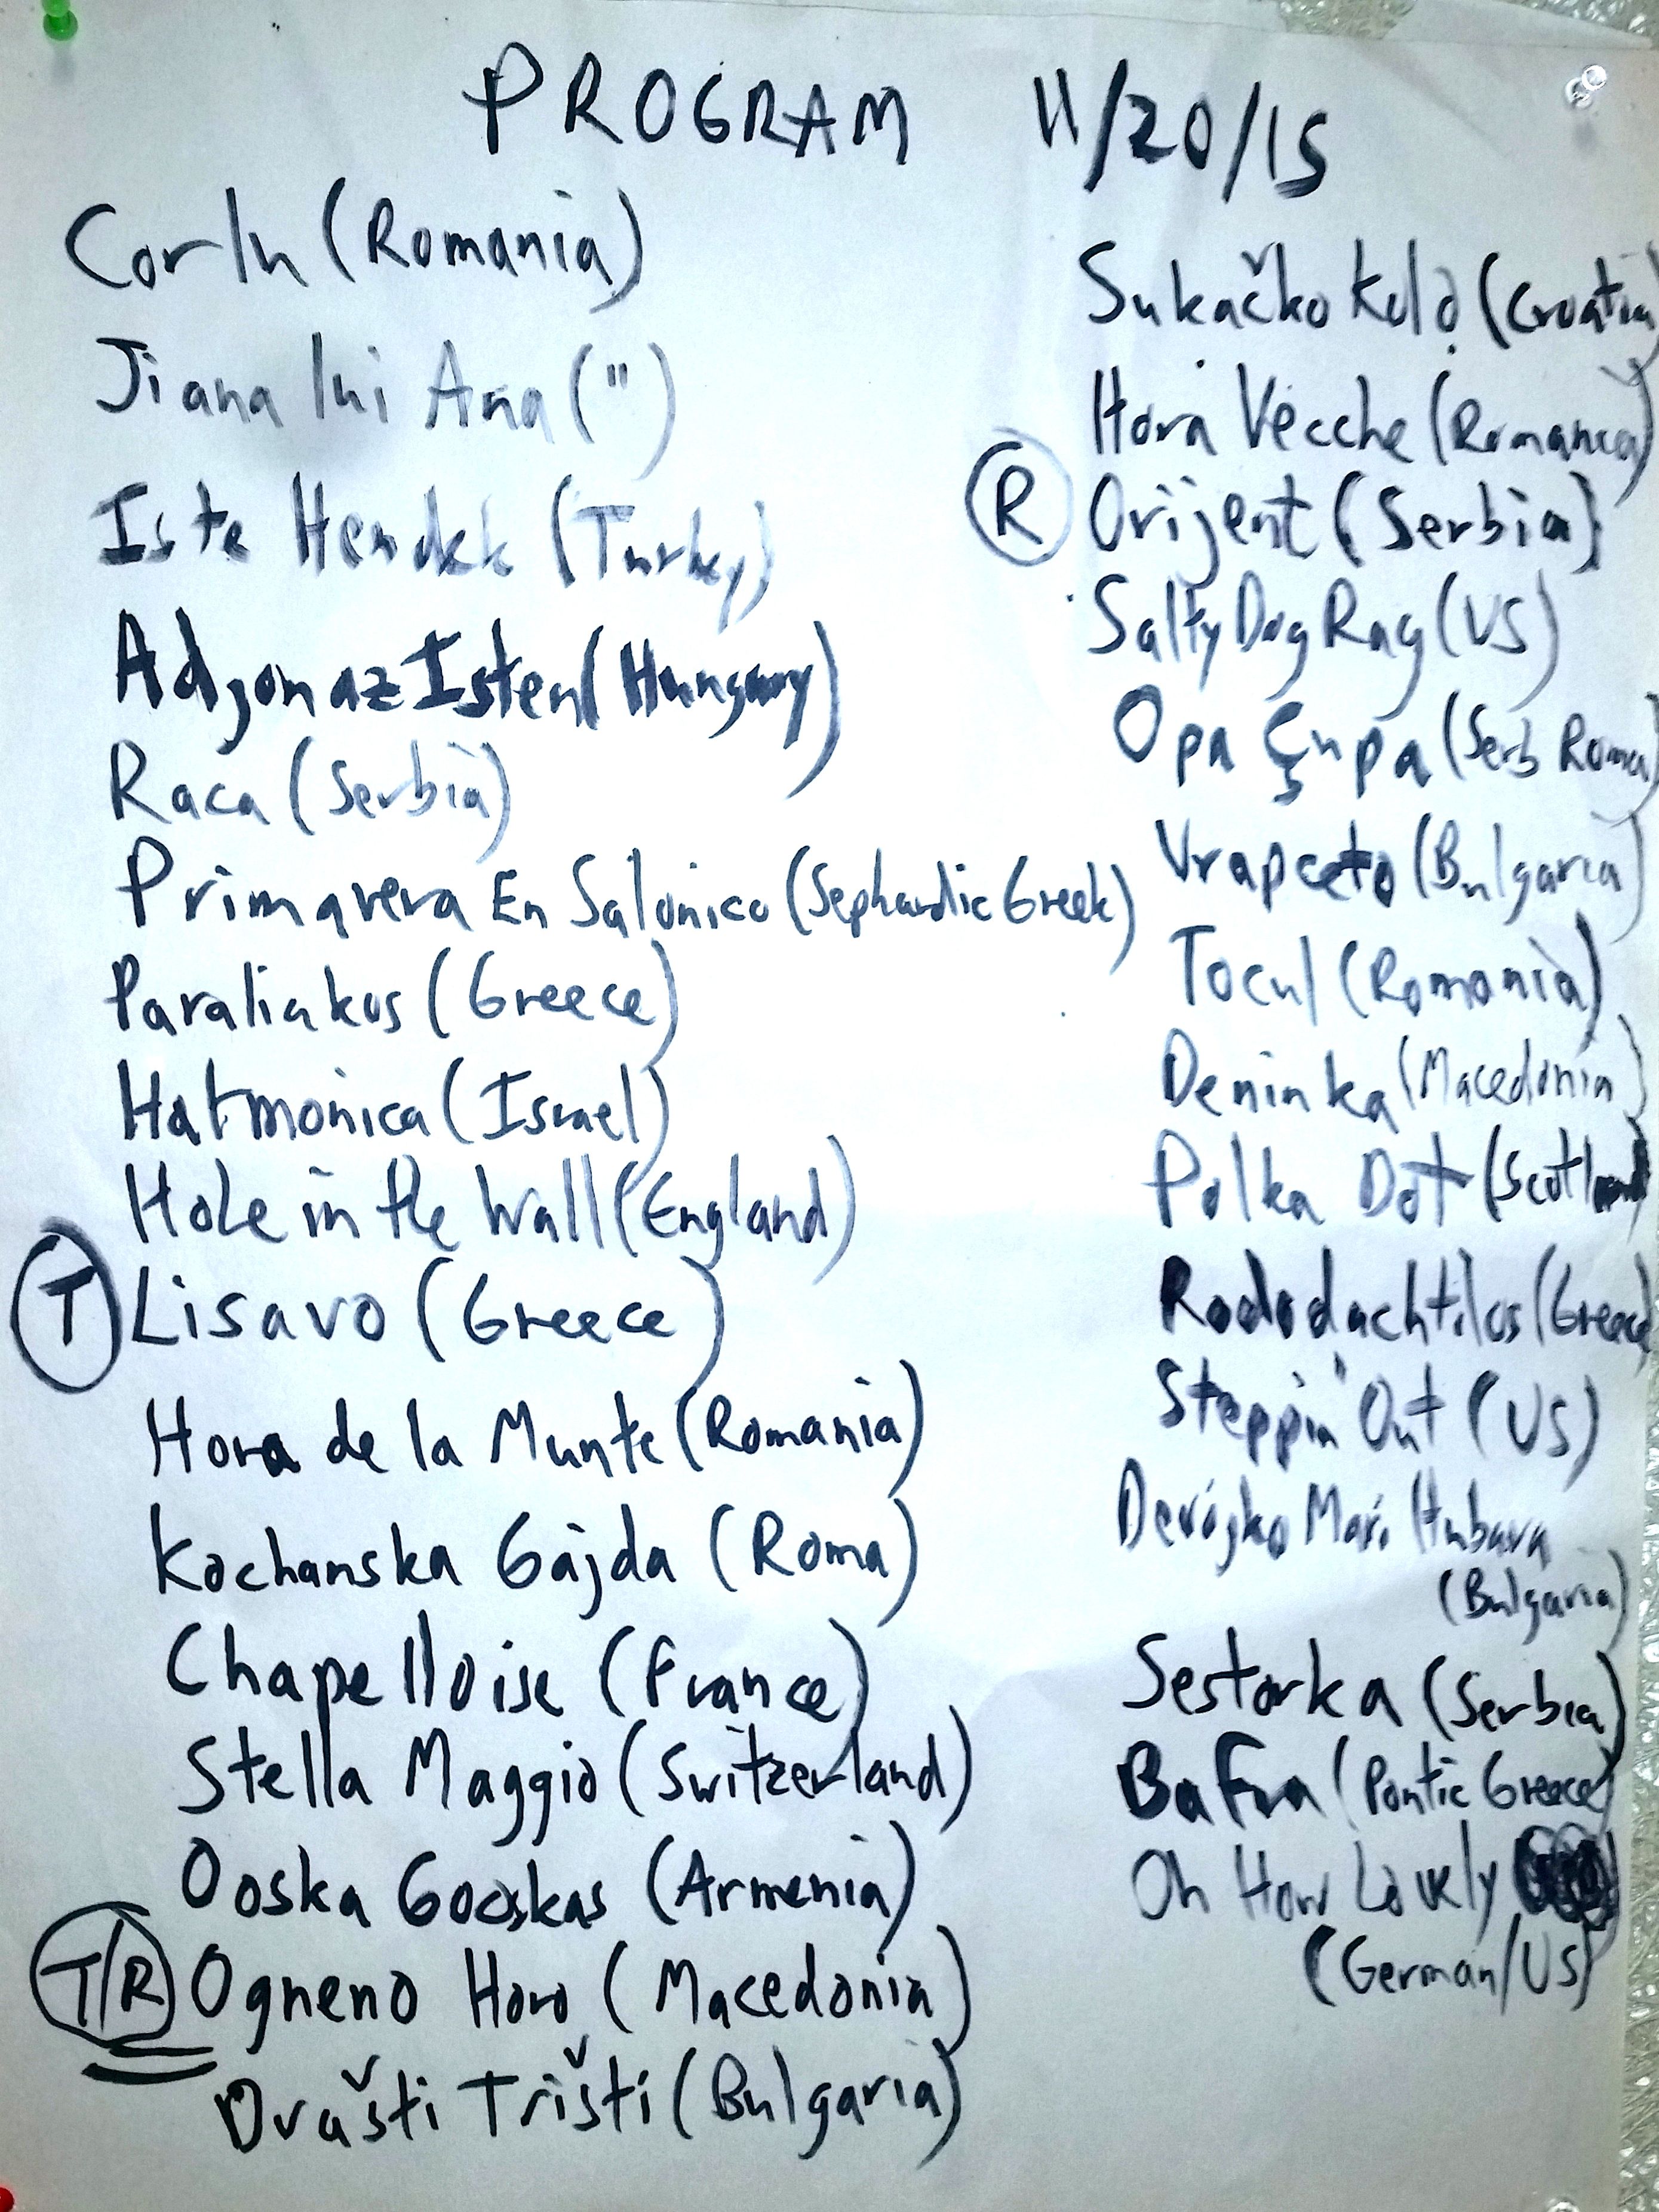 PROGRAM 11/20/15
Corlu (Romania)
Jiana lui Ana (")
Iste Hendek (Turkey)
Adjon az Isten (Hungary)
Raca (Serbia)
Primavera En Salonico (Sephardic Greek)
Paraliakos (Greece)
Harmonica (Israel)
Hole in the Wall (England)
T Lisavo (Greece)
Hora de la Munte (Romania)
Kochanska Gajda (Roma)
Chapelloise (France)
Stella Maggio (Switzerland)
Ooska Gooskas (Armenia)
T/R Ogneno Horo (Macedonia)
Dvašti Trišti (Bulgaria)
Sukačko Kolo (Croatia)
Hora Vecche (Romania)
R Orijent (Serbia)
Salty Dog Rag (US)
Opa Çupa (Serb Roma)
Vrapceto (Bulgaria)
Tocul (Romania)
Deninka (Macedonia)
Polka Dot (Scotland)
Rododachtilos (Greece)
Steppin' Out (US)
Devojko Mari Hubava
(Bulgaria)
Sestorka (Serbia)
Bafra (Pontic Greece)
Oh How Lovely
(German/US)